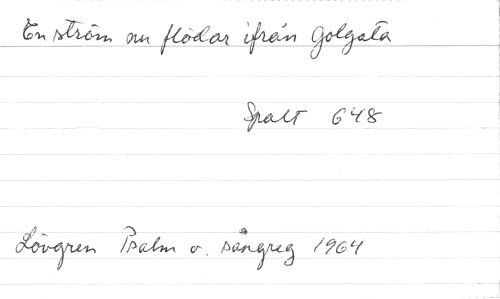 En ström nu flödar ifrån Golgata
Spalt 648
Lövgren Psalm o. sångreg 1964